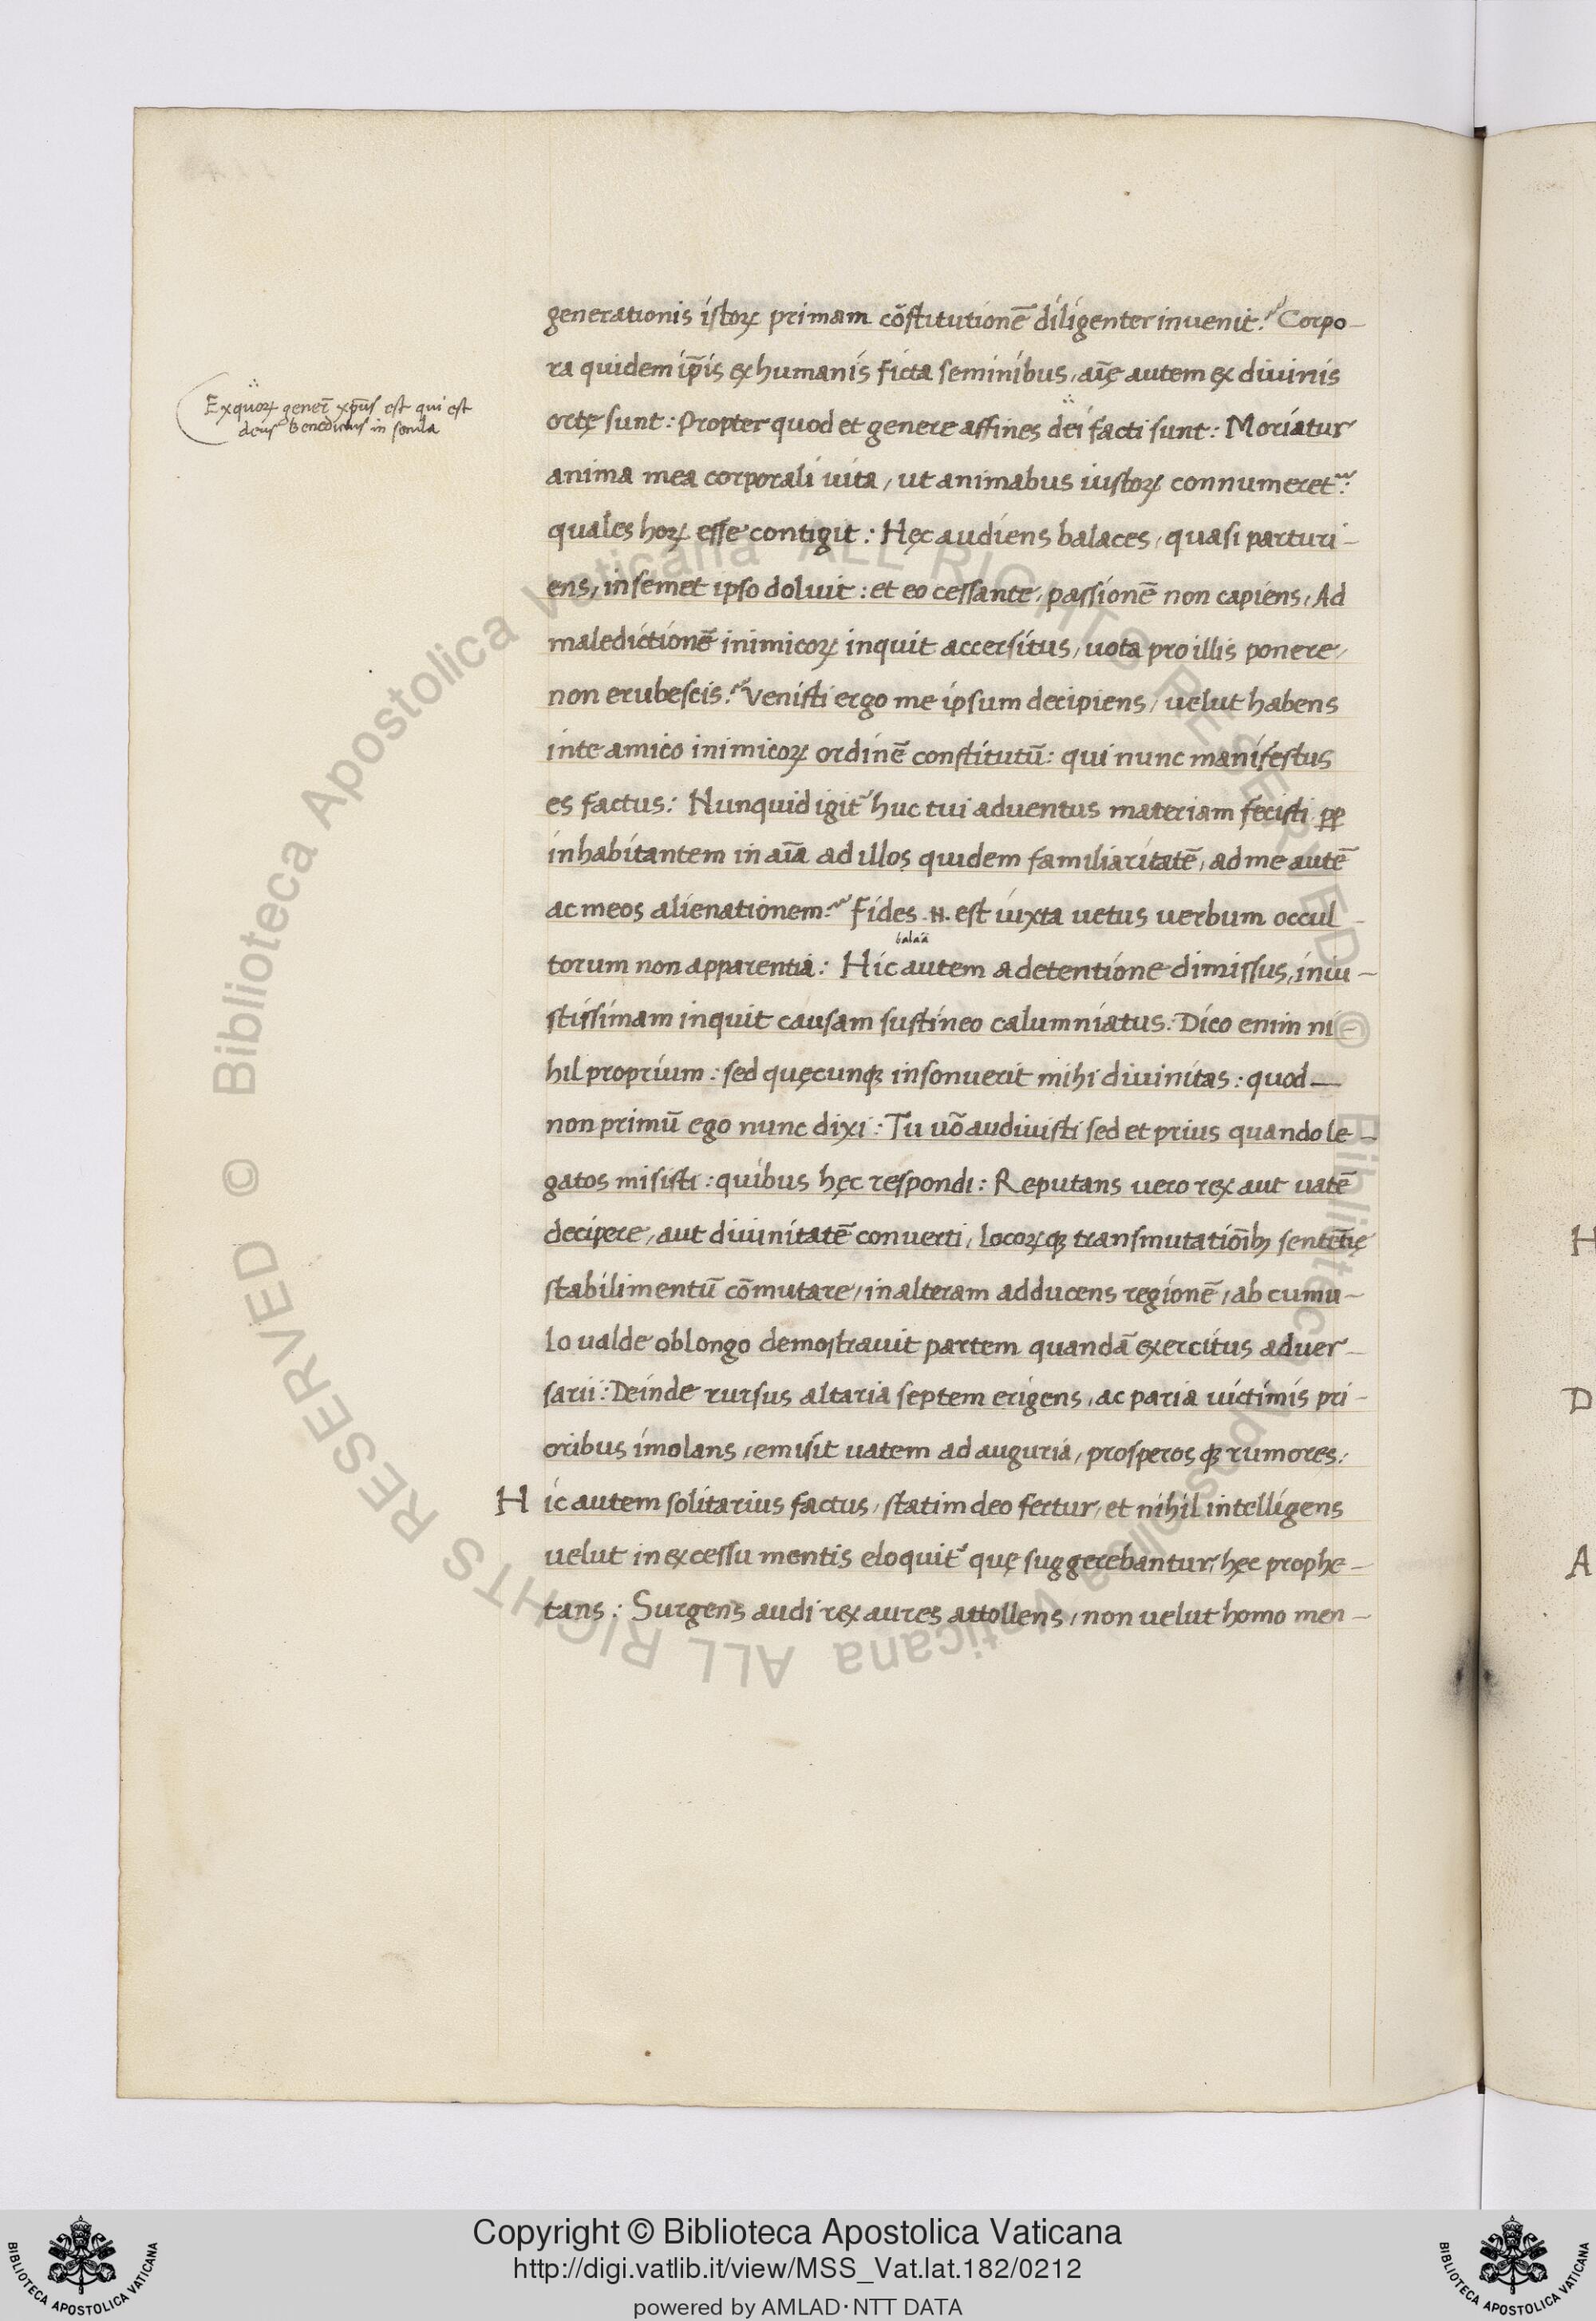 generationis istoꝝ primam cōstitutionē diligenter inuenit? Corpo-
ra quidem ip̄is ex humanis ficta seminibus, aīę autem ex diuinis
ortę sunt: Propter quod et genere affines dei facti sunt: Moriatur
anima mea corporali uita, ut animabus iustoꝝ connumeret᷑?
quales hoꝝ esse contigit: Hęc audiens balaces, quasi parturi-
ens, in semet ipso doluit: et eo cessante, passionē non capiens, Ad
maledictionē inimicoꝝ inquit accersitus, uota pro illis ponere,
non erubescis? Venisti ergo me ipsum decipiens, uelut habens
in te amico inimicoꝝ ordinē constitutū: qui nunc manifestus
es factus: Nunquid igit᷑ huc tui aduentus materiam fecisti ꝓꝑ
inhabitantem in aīa ad illos quidem familiaritatē, ad me autē
ac meos alienationem? Fides .n. est iuxta uetus uerbum occul-
balaā
torum non apparentia: Hic autem a detentione dimissus, iniu-
stissimam inquit causam sustineo calumniatus: Dico enim ni-
hil proprium: sed quęcunqꝫ insonuerit mihi diuinitas: quod—
non primū ego nunc dixi: Tu uō audiuisti sed et prius quando le-
gatos misisti: quibus hęc respondi: Reputans uero rex aut uatē
decipere, aut diuinitatē conuerti, locoꝝqꝫ transmutatiōibꝫ sentētię
stabilimentū cōmutare, in alteram adducens regionē, ab cumu-
lo ualde oblongo demostrauit partem quandā exercitus aduer-
sarii: Deinde rursus altaria septem erigens, ac paria uictimis pri-
oribus imolans, emisit uatem ad auguria, prosperosqꝫ rumores:
Hic autem solitarius factus, statim deo fertur, et nihil intelligens
uelut in excessu mentis eloquit᷑ quę suggerebantur, hęc prophe-
tans: Surgens audi rex aures attollens, non uelut homo men-
Ex quoꝝ gener̄ xp̄us est qui est
deus benedictus in secula
H
D
A
Copyright © Biblioteca Apostolica Vaticana
http://digi.vatlib.it/view/MSS_Vat.lat.182/0212
powered by AMLAD·NTT DATA
BIBLIOTECA APOSTOLICA VATICANA
BIBLIOTECA APOSTOLICA VATICANA
© Biblioteca Apostolica Vaticana ALL RIGHTS RESERVED © Biblioteca Apostolica Vaticana ALL RIGHTS RESERVED